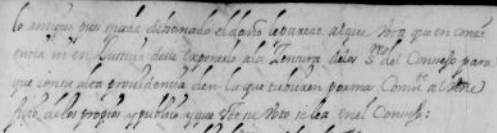 lo antiguo pues queda dictaminado el daño le parece al que Vota que en consi
encia ni en Justicia deve exponerlo a la Zensura de los S.res del Consejo para
que con su alta providencia den la que tubieren por mas Comb.te al Vene
ficio de los propios y publico y que este su Voto se lea en el Consejo: